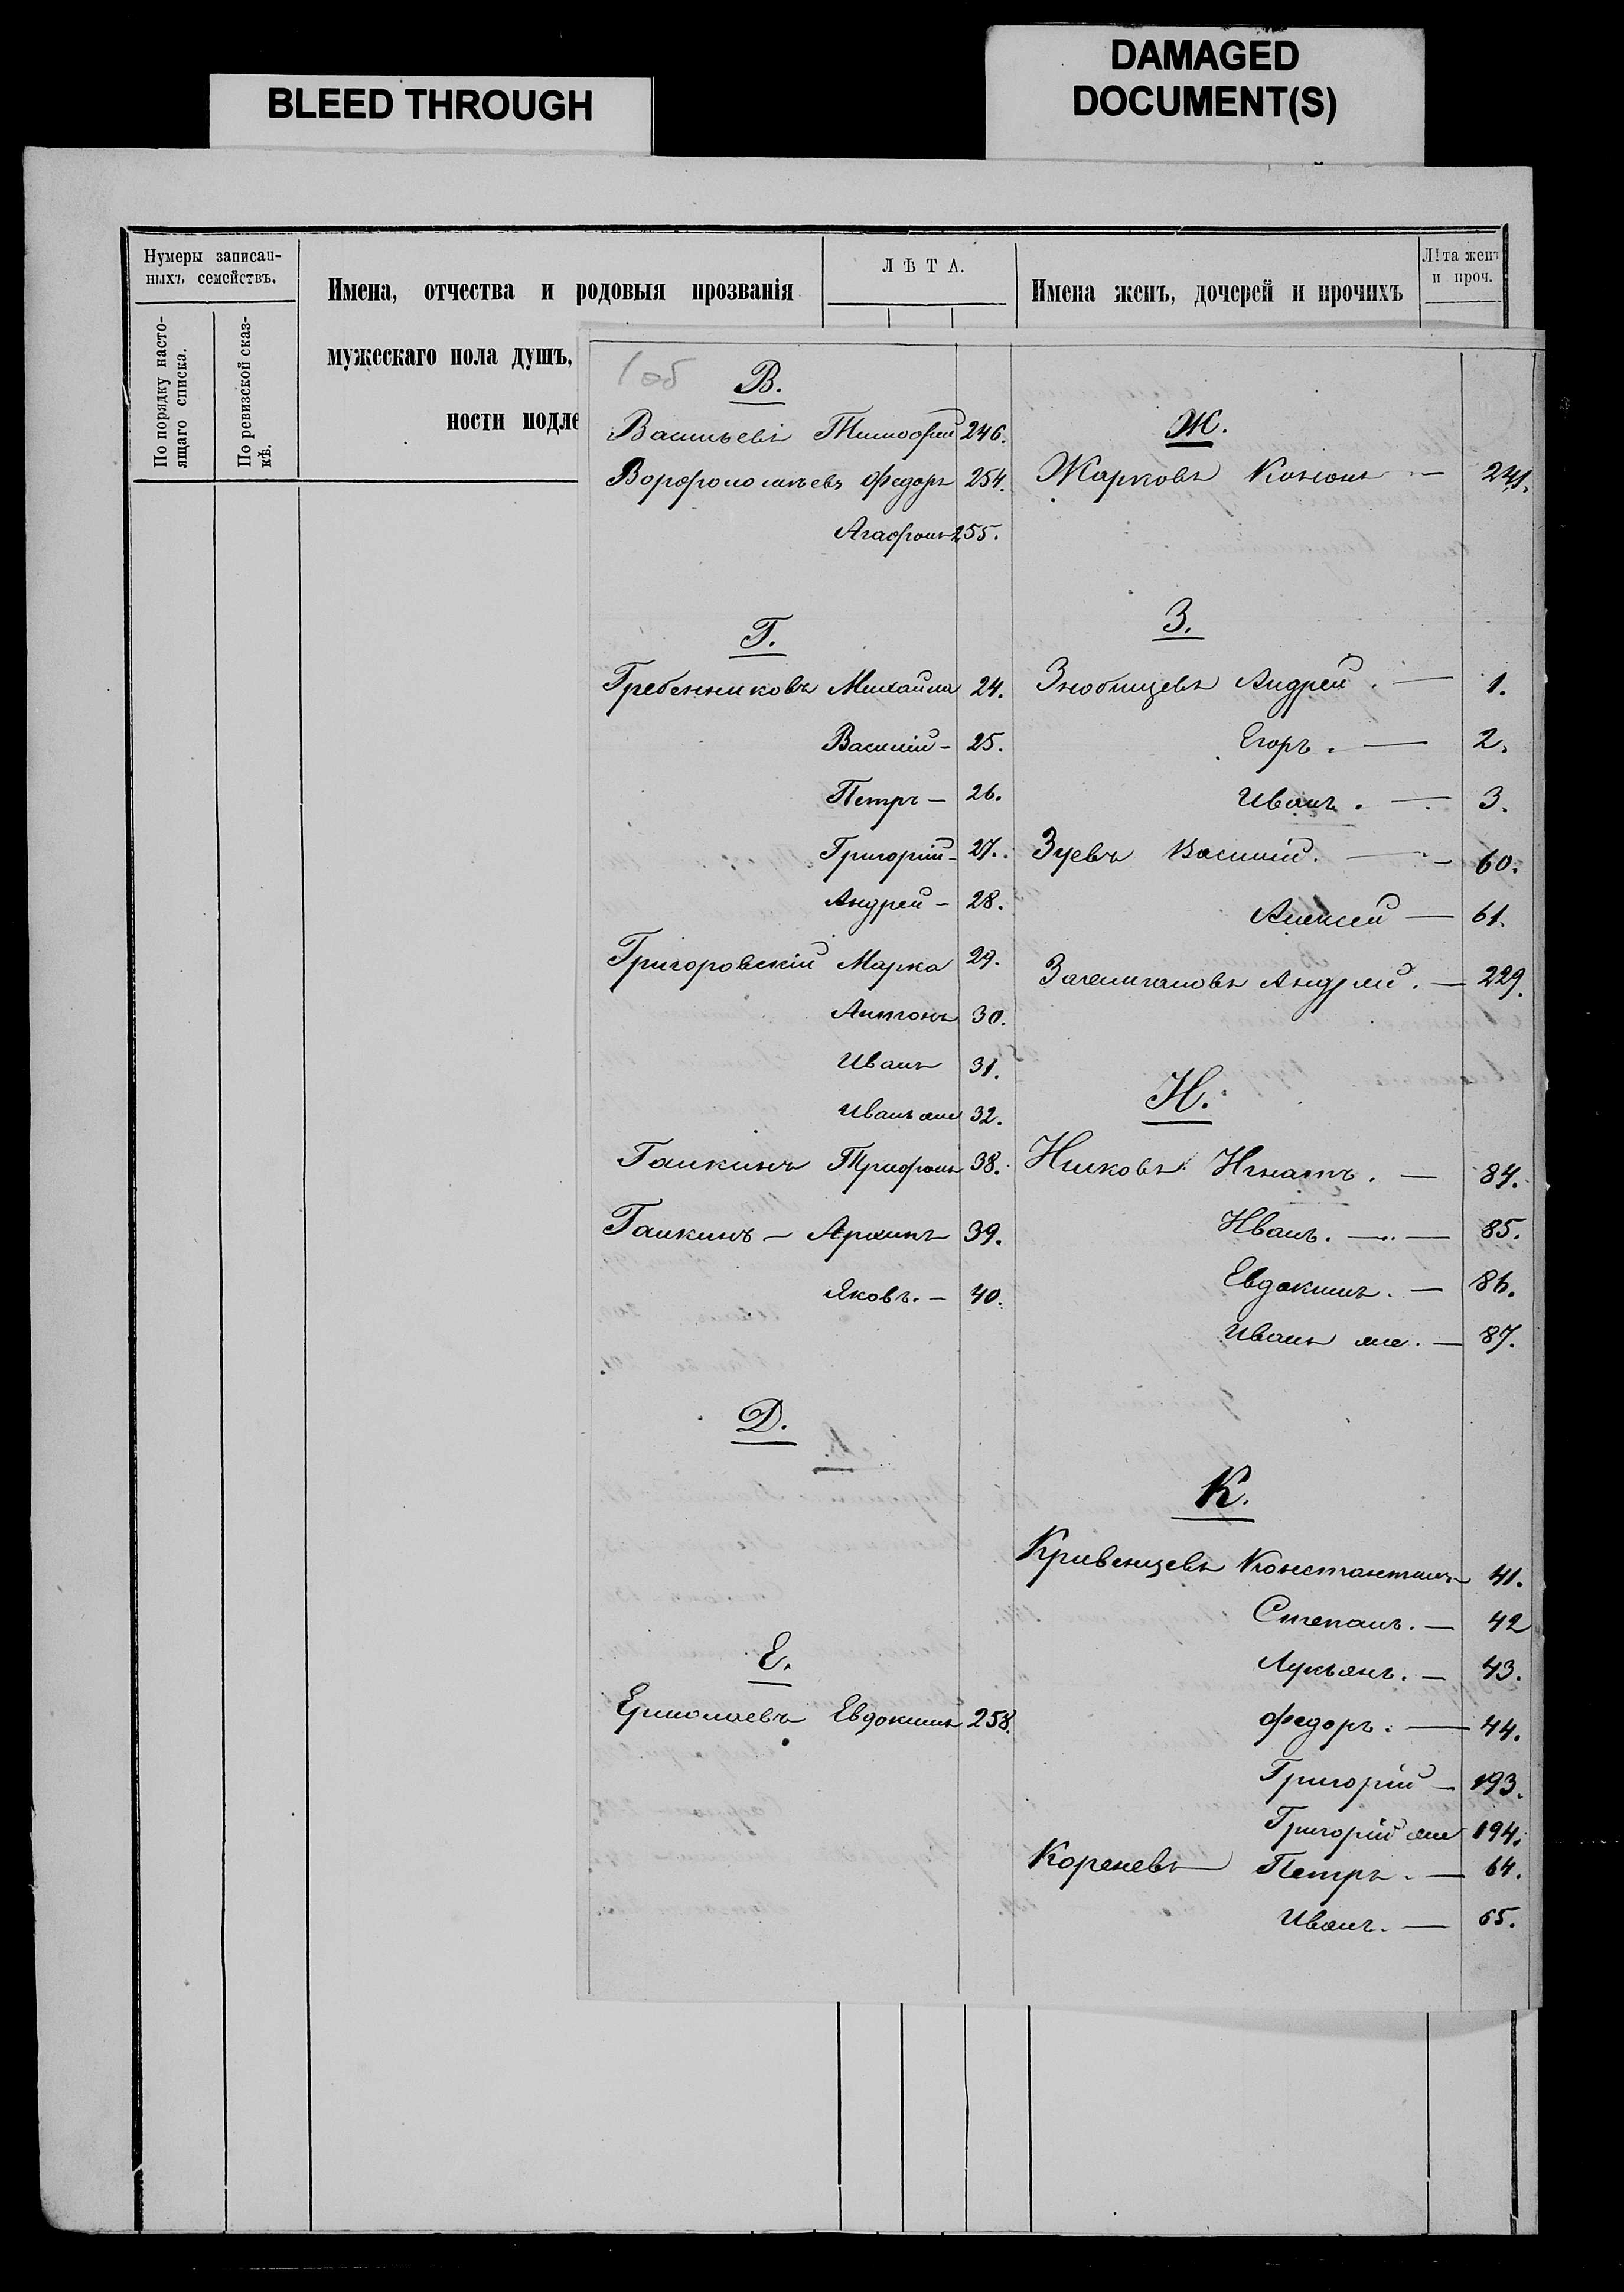 BLEED THROUGH
DAMAGED
DOCUMENT(S)
Нумеры записан-
ныхъ семействъ.
По порядку насто-
ящаго списка.
По ревизской сказ-
кѣ.
Имена, отчества и родовыя прозванія
мужескаго пола душъ,
ности подле
ЛѢТА.
Имена женъ, дочерей и прочихъ
Лѣта женъ
и проч.
1 об
В.
Васильевъ Тимофей 246.
Ворфоломѣевъ Федоръ 254.
Агафонъ 255.
Г.
Гребенниковъ Михайла 24.
Василій - 25.
Петръ - 26.
Григорій - 27.
Андрей - 28.
Григоровскій Марко 29.
Антонъ 30.
Иванъ 31.
Иванъ же 32.
Галкинъ Трифонъ 38.
Галкинъ - Архипъ 39.
Яковъ. - 40.
Д.
Е.
Ермолаевъ Евдокимъ 258.
Ж.
Жарковъ Кононъ - 241.
З.
Знобищевъ Андрей. - 1.
Егоръ. - 2.
Иванъ. - 3.
Зуевъ Василій. - 60.
Алексей - 61.
Андрей. - 229.
И.
Илковъ Игнатъ. - 84.
Иванъ. - 85.
Евдокимъ. - 86.
Иванъ же. - 87.
К.
Кривенцевъ Константинъ 41.
Степанъ. - 42
Лукьянъ. - 43.
Федоръ. - 44.
Григорій - 193.
Григорій же 194.
Кореневъ Петръ. - 64.
Иванъ. - 65.